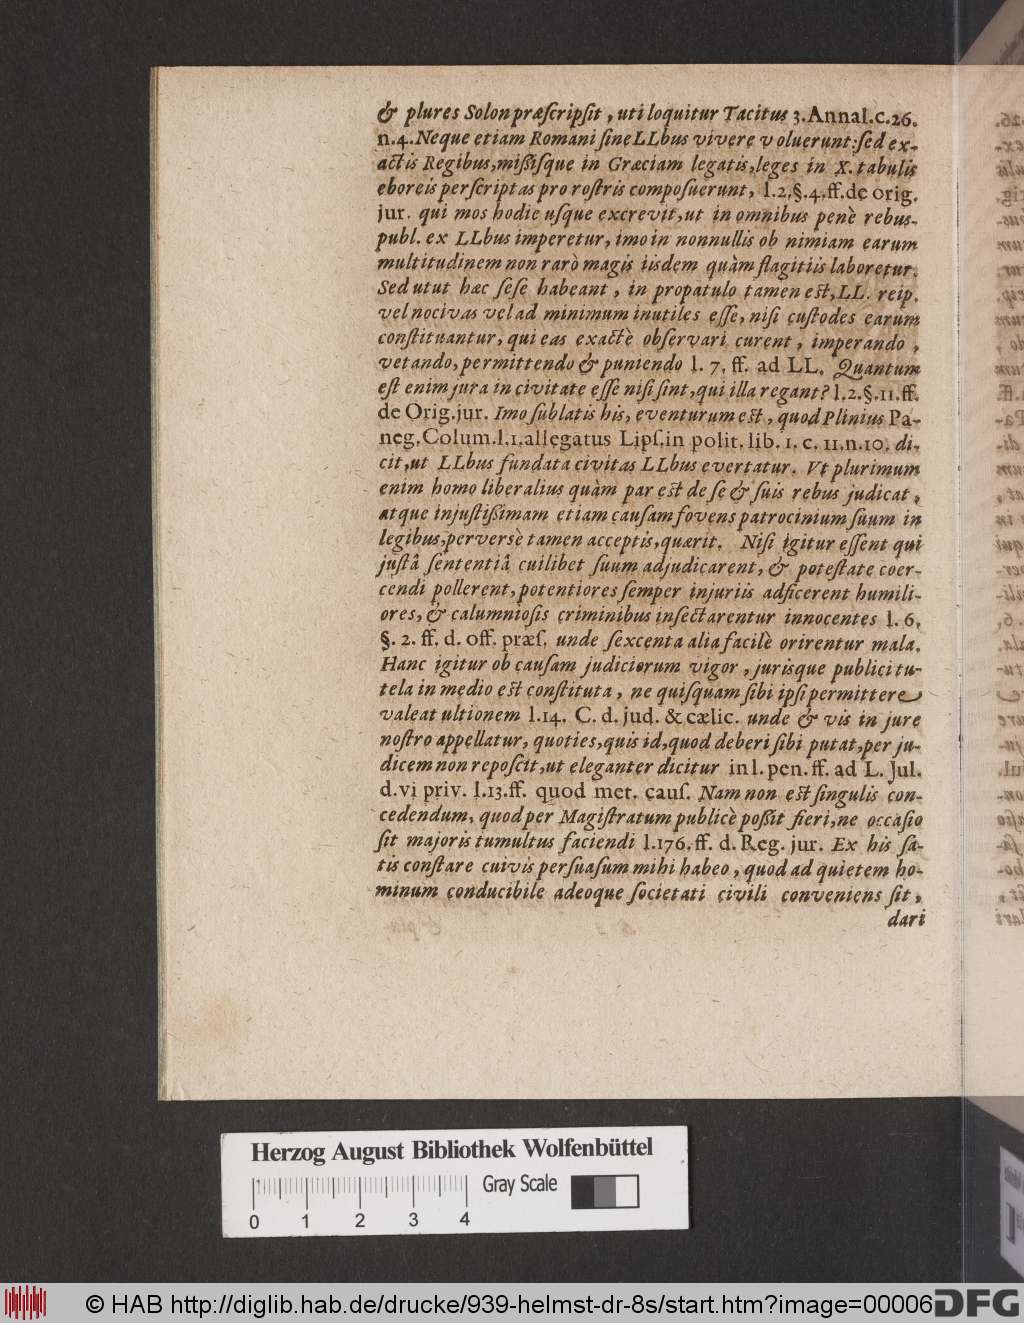 & plures Solon præſcripſit, uti loquitur Tacitus 3. Annal. c. 26.
n. 4. Neque etiam Romani ſine LLbus vivere voluerunt: ſed ex-
actis Regibus, miſſiſque in Græciam legatis, leges in X. tabulis
eboreis perſcriptas pro roſtris compoſuerunt, l. 2. §. 4. ff. de orig.
jur. qui mos hodie uſque excrevit, ut in omnibus penè rebus-
publ. ex LLbus imperetur, imo in nonnullis ob nimiam earum
multitudinem non rarò magis iisdem quàm flagitiis laboretur.
Sed utut hæc ſeſe habeant, in propatulo tamen eſt, LL. reip.
vel nocivas vel ad minimum inutiles eſſe, niſi cuſtodes earum
conſtituantur, qui eas exactè obſervari curent, imperando,
vetando, permittendo & puniendo l. 7. ff. ad LL. Quantum
eſt enim jura in civitate eſſe niſi ſint, qui illa regant? l. 2. §. 11. ff.
de Orig. jur. Imo ſublatis his, eventurum eſt, quod Plinius Pa-
neg. Colum. l. 1. allegatus Lipſ. in polit. lib. 1. c. 11. n. 10. di-
cit, ut LLbus fundata civitas LLbus evertatur. Vt plurimum
enim homo liberalius quàm par eſt de ſe & ſuis rebus judicat,
atque injuſtiſſimam etiam cauſam fovens patrocinium ſuum in
legibus, perversè tamen acceptis, quærit. Niſi igitur eſſent qui
juſtâ ſententiâ cuilibet ſuum adjudicarent, & poteſtate coer-
cendi pollerent, potentiores ſemper injuriis adficerent humili-
ores, & calumnioſis criminibus inſectarentur innocentes l. 6.
§. 2. ff. d. off. præſ. unde ſexcenta alia facilè orirentur mala.
Hanc igitur ob cauſam judiciorum vigor, jurisque publici tu-
tela in medio eſt conſtituta, ne quiſquam ſibi ipſi permittere
valeat ultionem l. 14. C. d. jud. & cælic. unde & vis in jure
noſtro appellatur, quoties, quis id, quod deberi ſibi putat, per ju-
dicem non repoſcit, ut eleganter dicitur in l. pen. ff. ad L. Jul.
d. vi priv. l. 13. ff. quod met. cauſ. Nam non eſt ſingulis con-
cedendum, quod per Magiſtratum publicè poſſit fieri, ne occaſio
ſit majoris tumultus faciendi l. 176. ff. d. Reg. jur. Ex his ſa-
tis conſtare cuivis perſuaſum mihi habeo, quod ad quietem ho-
minum conducibile adeoque ſocietati civili conveniens ſit,
dari
Herzog August Bibliothek Wolfenbüttel
Gray Scale
0 1 2 3 4
© HAB http://diglib.hab.de/drucke/939-helmst-dr-8s/start.htm?image=00006
DFG